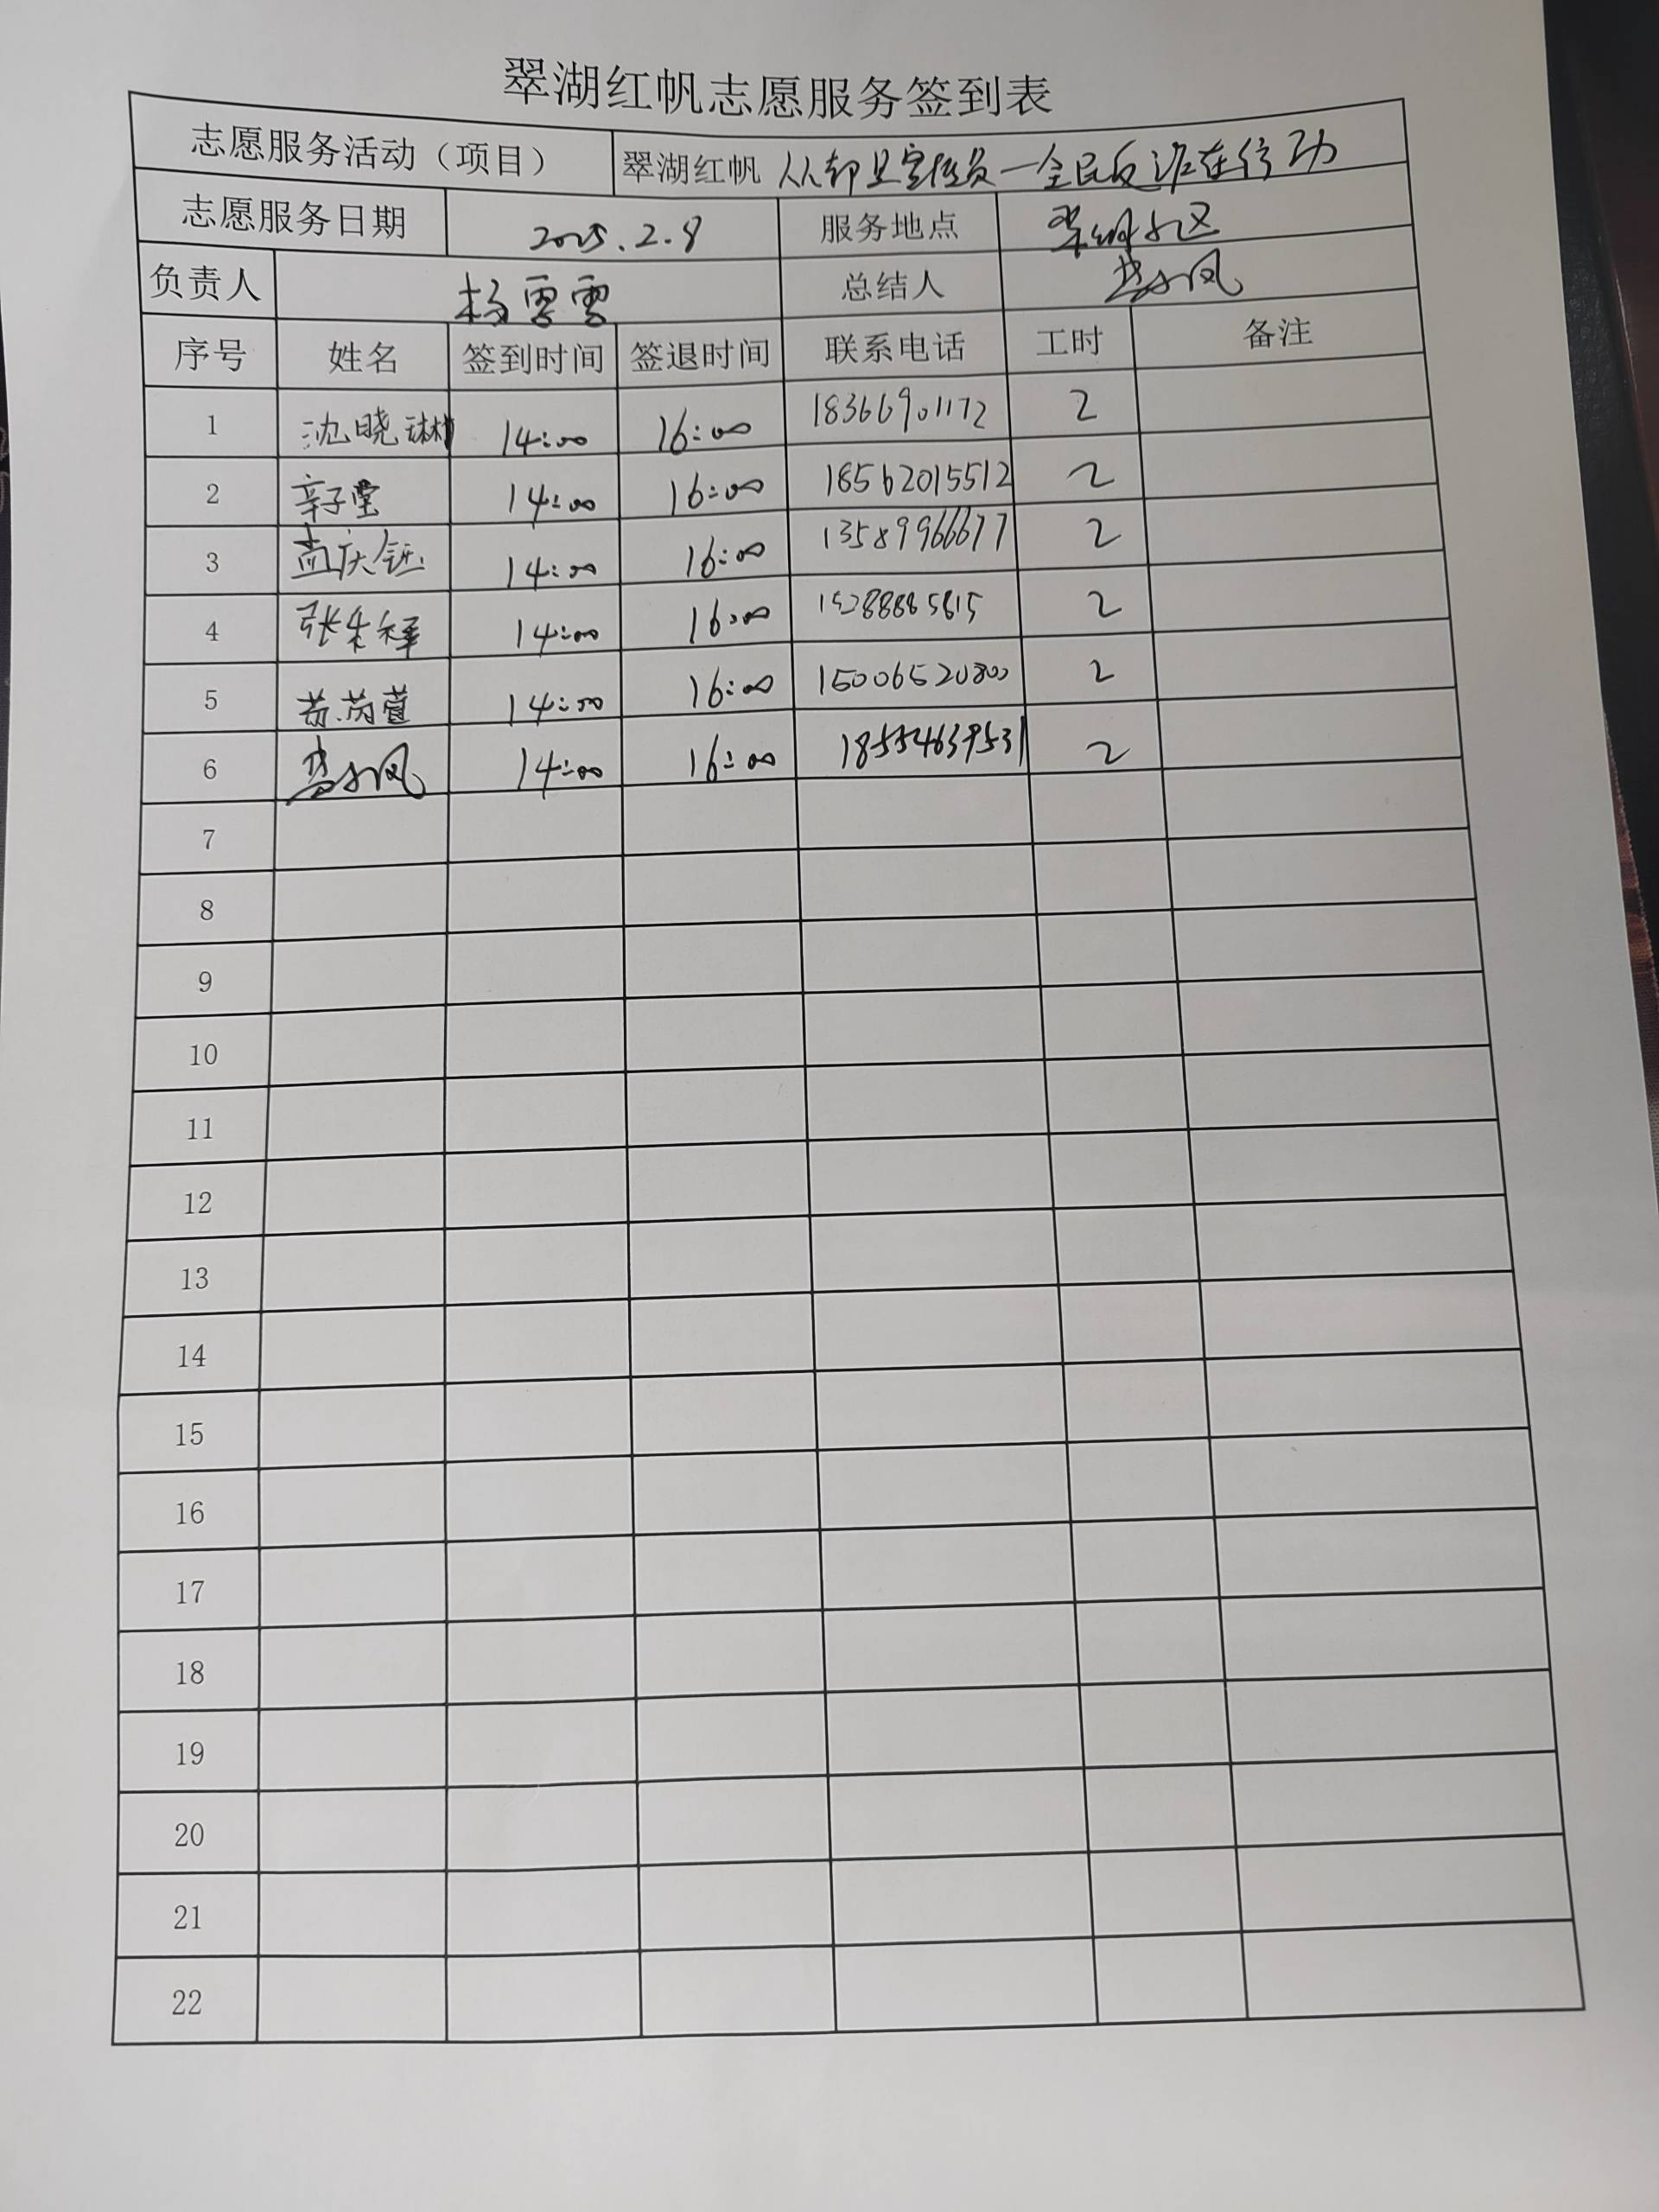 翠湖红帆志愿服务签到表
志愿服务活动（项目） 翠湖红帆 人人都是宣传员一全民反诈在行动
志愿服务日期 2025.2.8 服务地点 翠湖小区
负责人 杨雪雪 总结人
序号 姓名 签到时间 签退时间 联系电话 工时 备注
1 沈晓琳 14:00 16:00 18366901172 2
2 辛子堂 14:00 16:00 18562015512 2
3 孟庆钰 14:00 16:00 13589966677 2
4 14:00 16:00 2
5 14:00 16:00 15006520800 2
6 14:00 16:00 18554639531 2
7
8
9
10
11
12
13
14
15
16
17
18
19
20
21
22